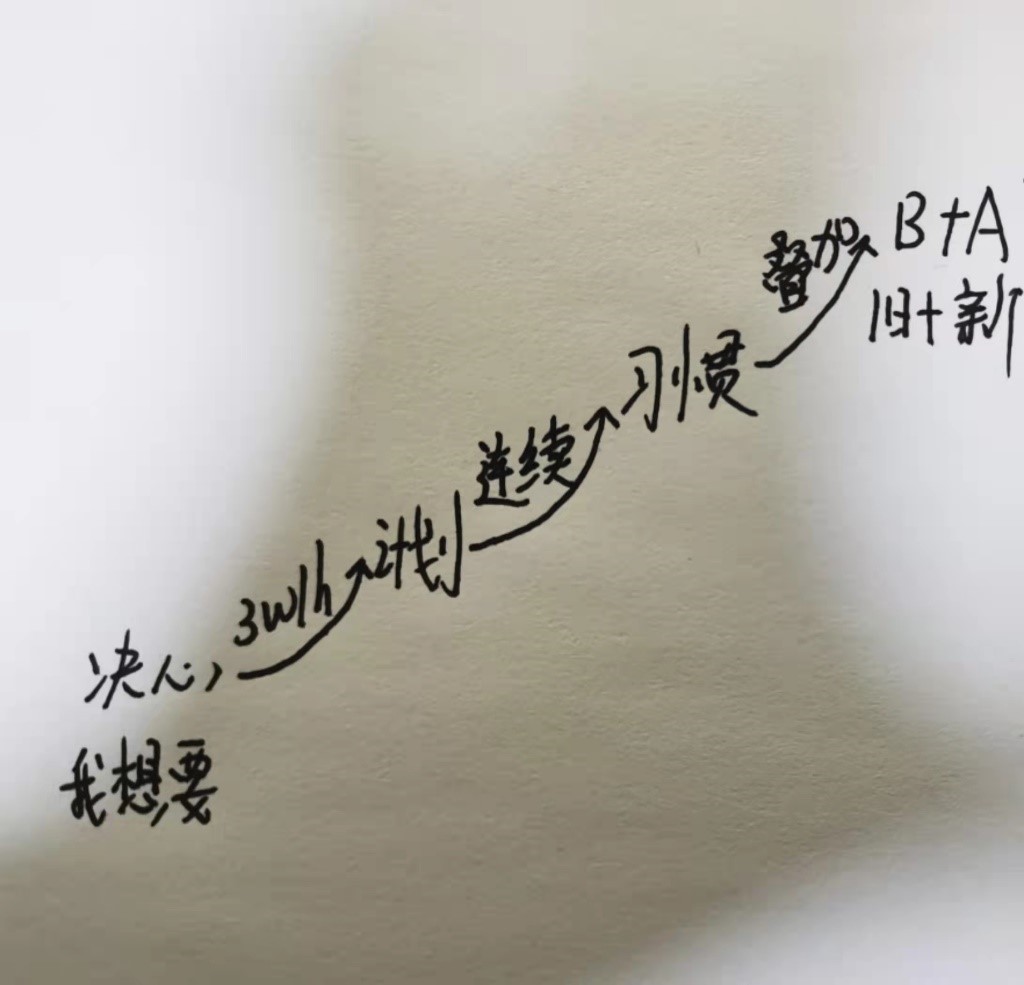 决心
我想要
3w1h
计划
连续
习惯
叠加
B+A
旧+新